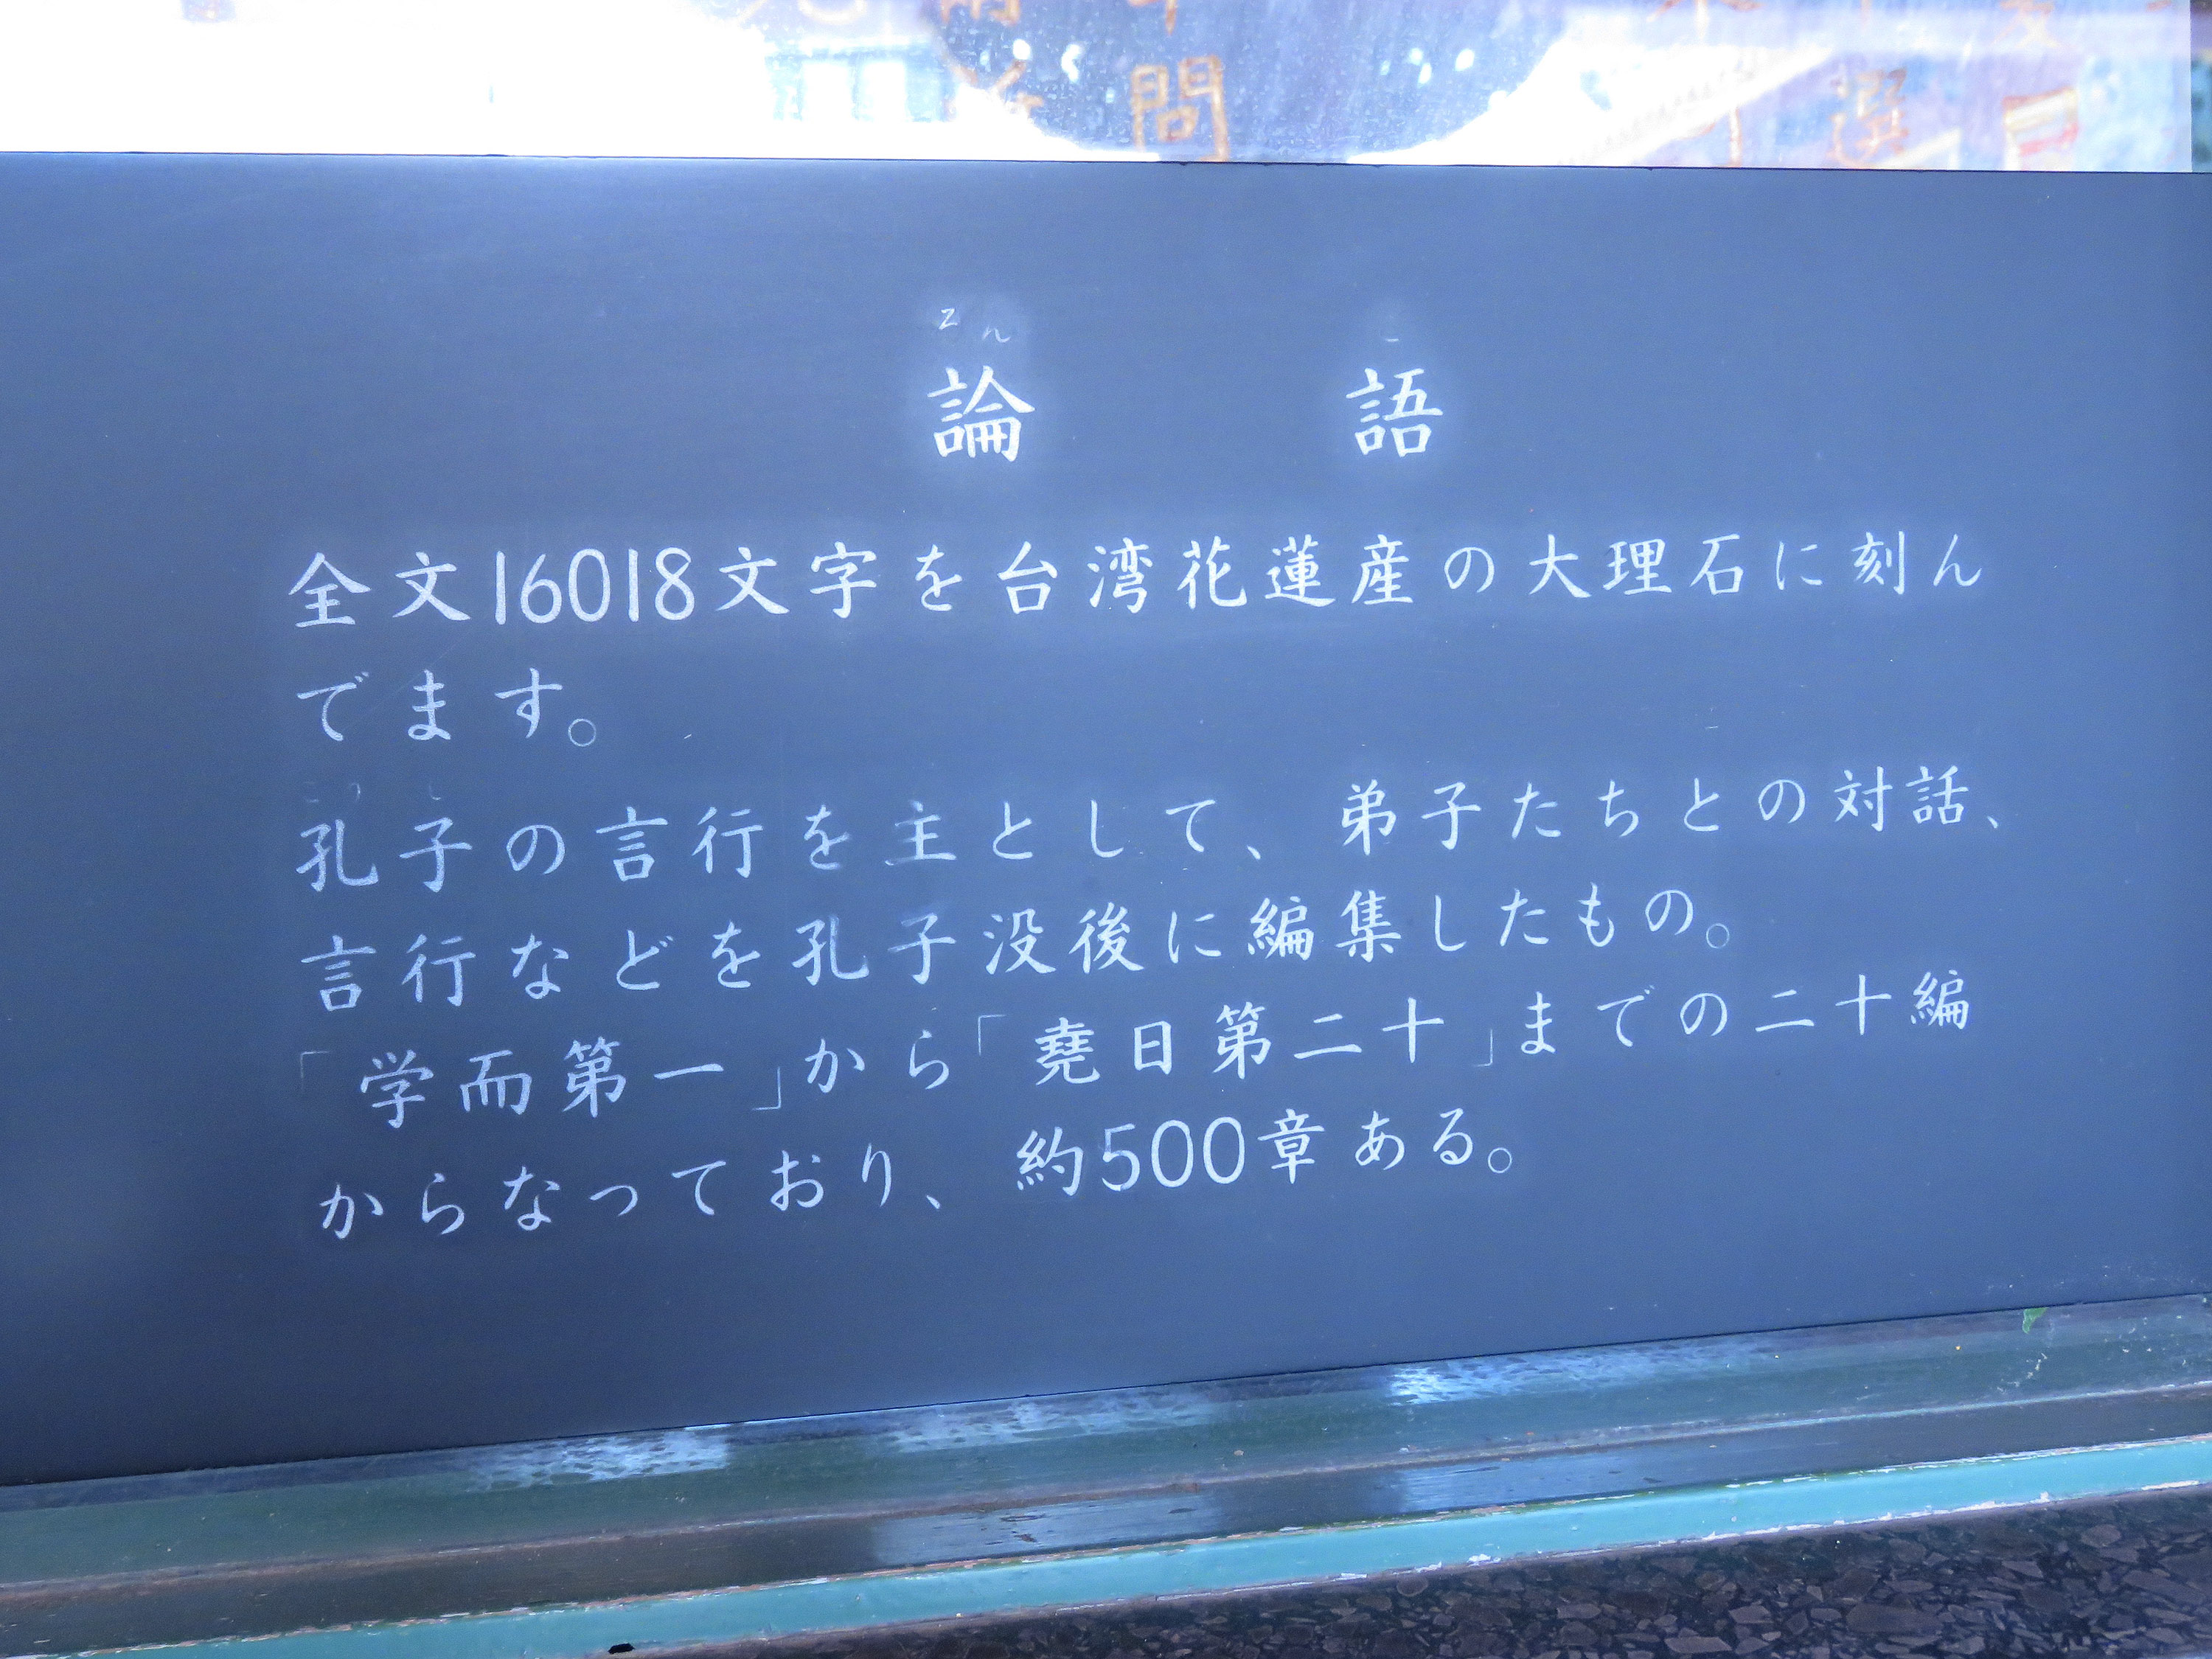 問
選
論 語
全文16018文字を台湾花蓮産の大理石に刻ん
でます。
孔子の言行を主として、弟子たちとの対話、
言行などを孔子没後に編集したもの。
「学而第一」から「堯日第二十」までの二十編
からなっており、約500章ある。